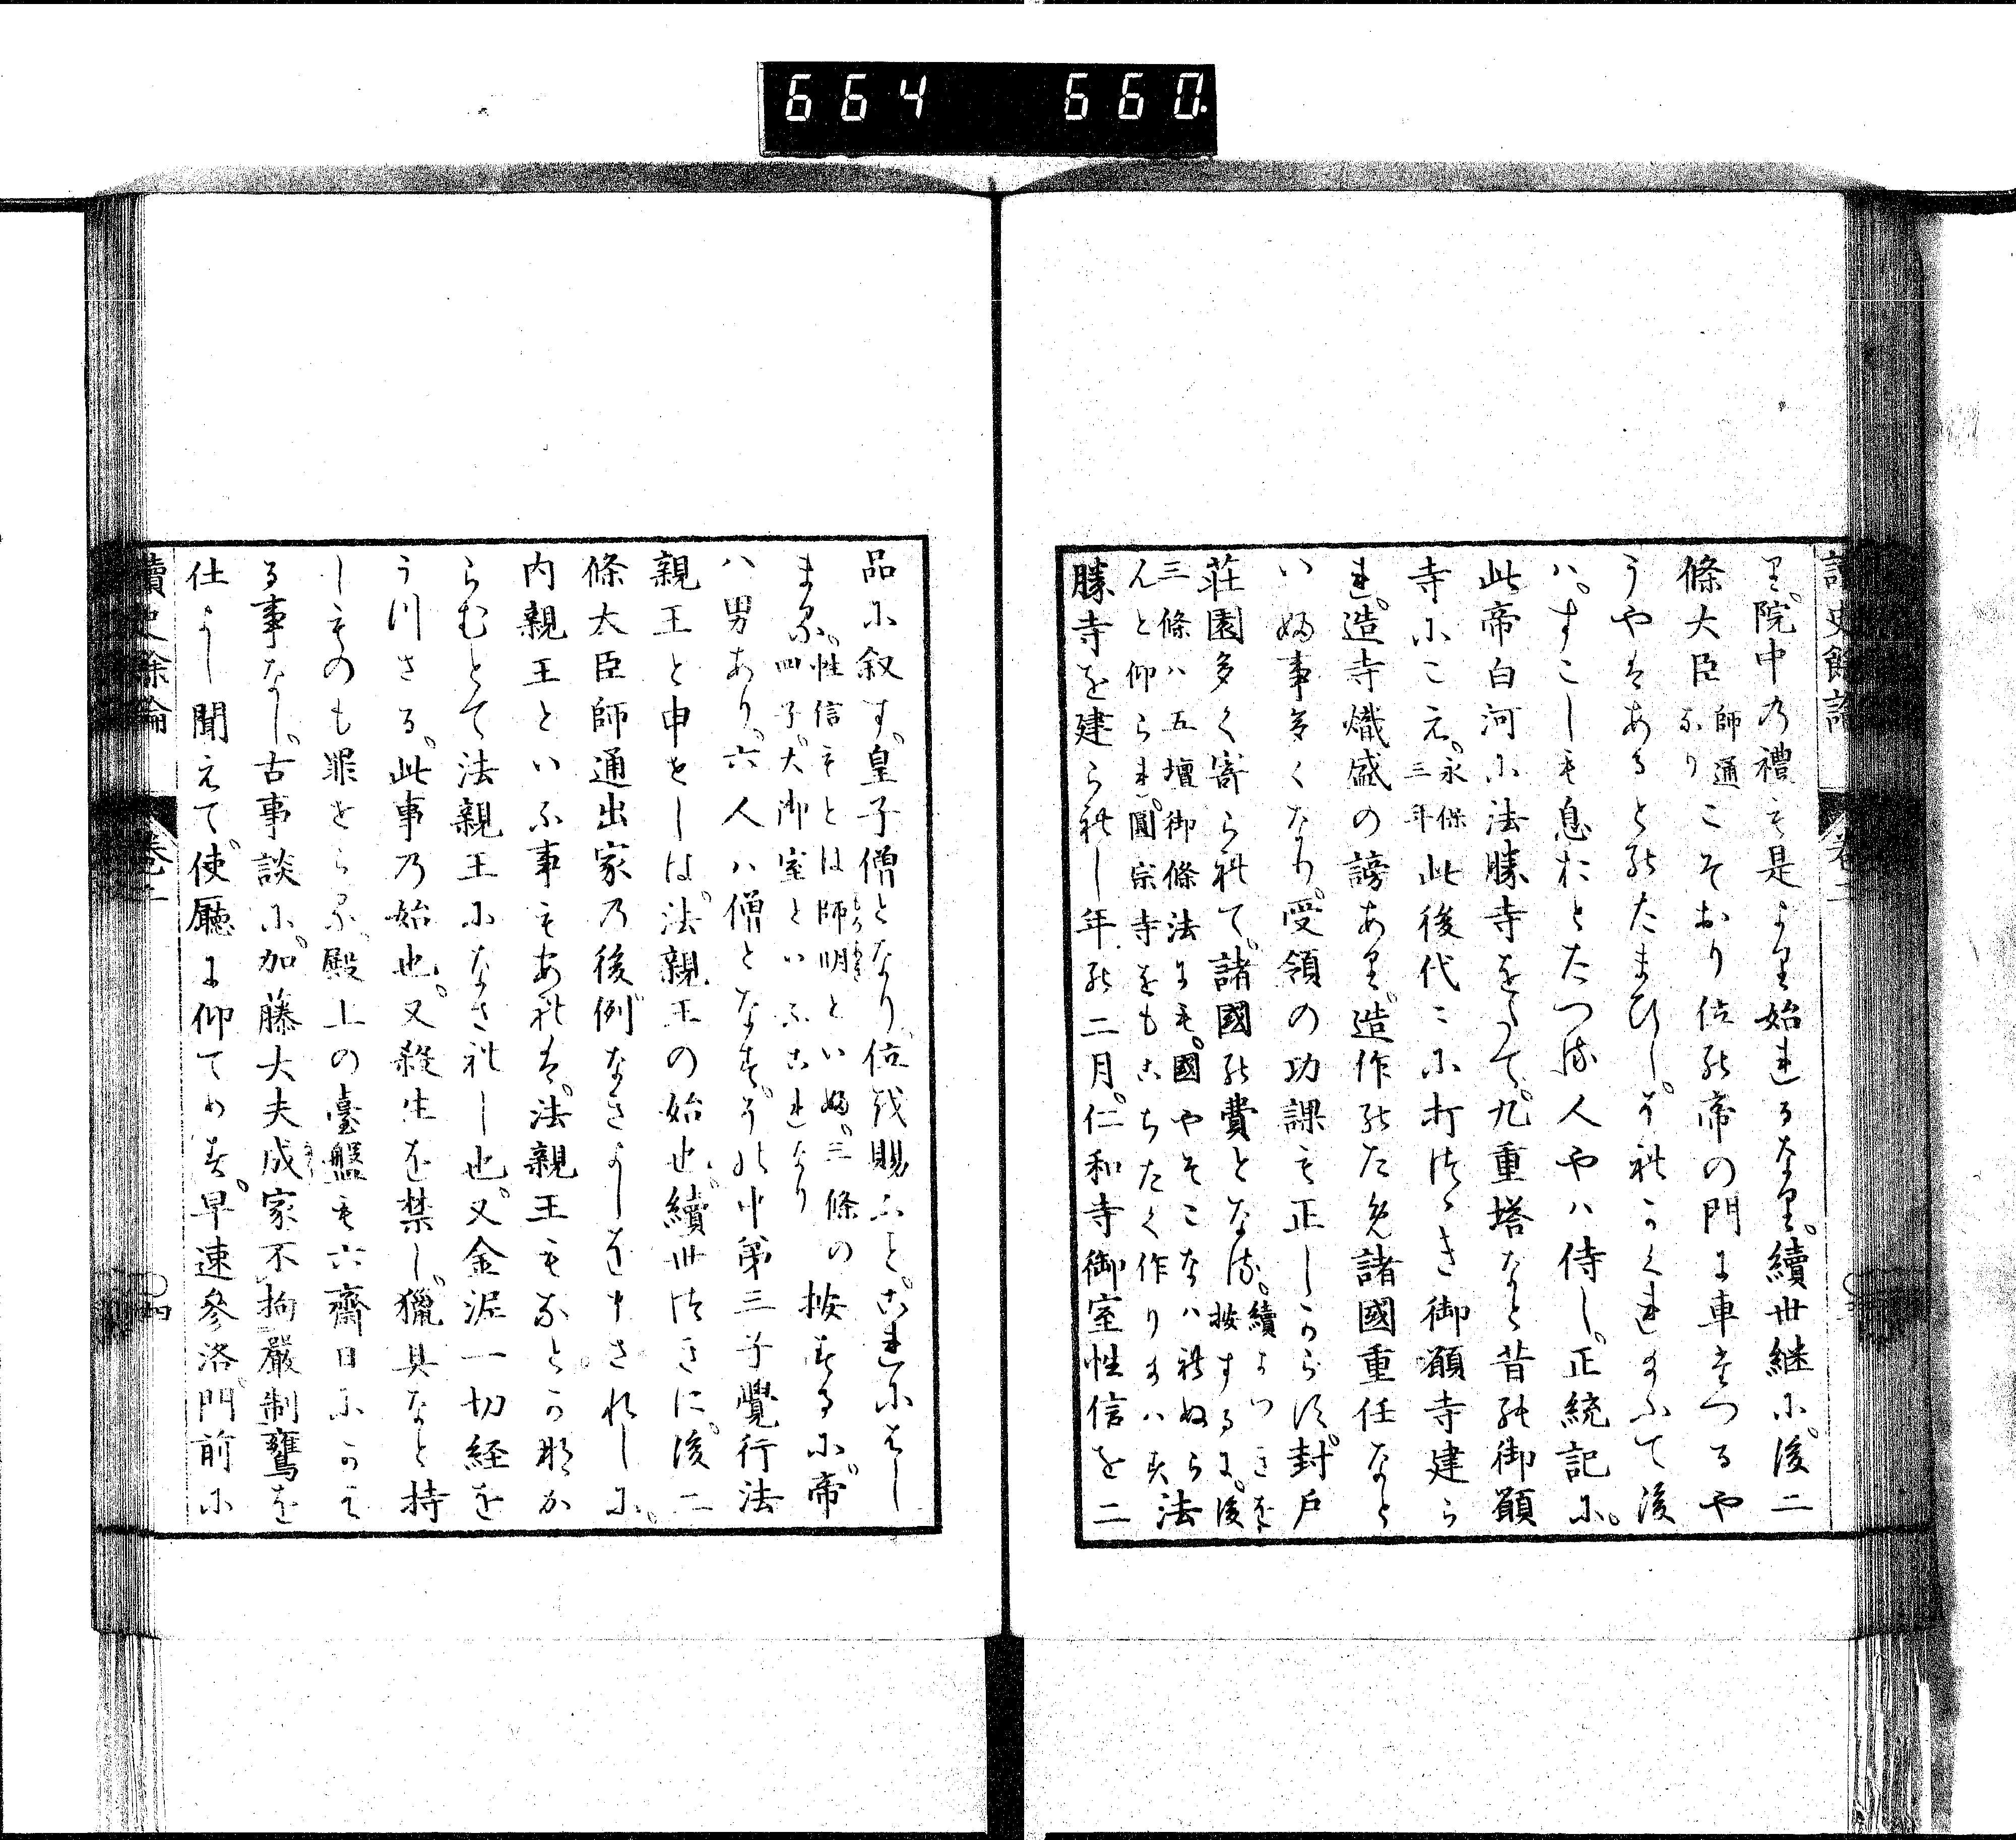 664 660
讀史餘論 卷二
り。院中の禮も是より始れるなり。續世継に。後二
條大臣師通なりこそおり位の帝の門に車たつるや
うやはあるとのたまひし。それかくれまふて後
ハ。すこしも息おとたつる人やハ侍し。正統記に。
此帝白河に法勝寺をたて。九重塔なと昔の御願
寺にこえ。永保三年此後代ことに打つゝき御願寺建ら
れ。造寺熾盛の謗あり。造作のため諸國重任なと
いふ事多くなり。受領の功課も正しからす。封戸
莊園多く寄られて。諸國の費となる。續よつきを按するに。後
三條ハ五壇御修法にも。國やそこなハれぬらんと仰られ。圓宗寺をもこちたく作りまハす法
勝寺を建られし年の二月。仁和寺御室性信を二
品に叙す。皇子僧となり位を賜ふこと。これにはし
まる。性信もとは師明といふ。三條の四子。大御室といふこれなり按するに。帝
八男あり。六人ハ僧となす。その中第三子覺行法
親王と申せしは。法親王の始也。續世つきに。後二
條大臣師通出家の後例なきよしを申されしに。
内親王といふ事もあれは。法親王もなとか那か
らむとて法親王になされし也。又金泥一切経を
うつさる。此事の始也。又殺生を禁し。獵具なと持
しものも罪せらる。殿上の臺盤も六齋日にかは
る事なし。古事談に。加藤大夫成家不拘嚴制鷹を
仕よし聞えて。使廳に仰てめす。早速參洛。門前に
讀史餘論 卷二 四